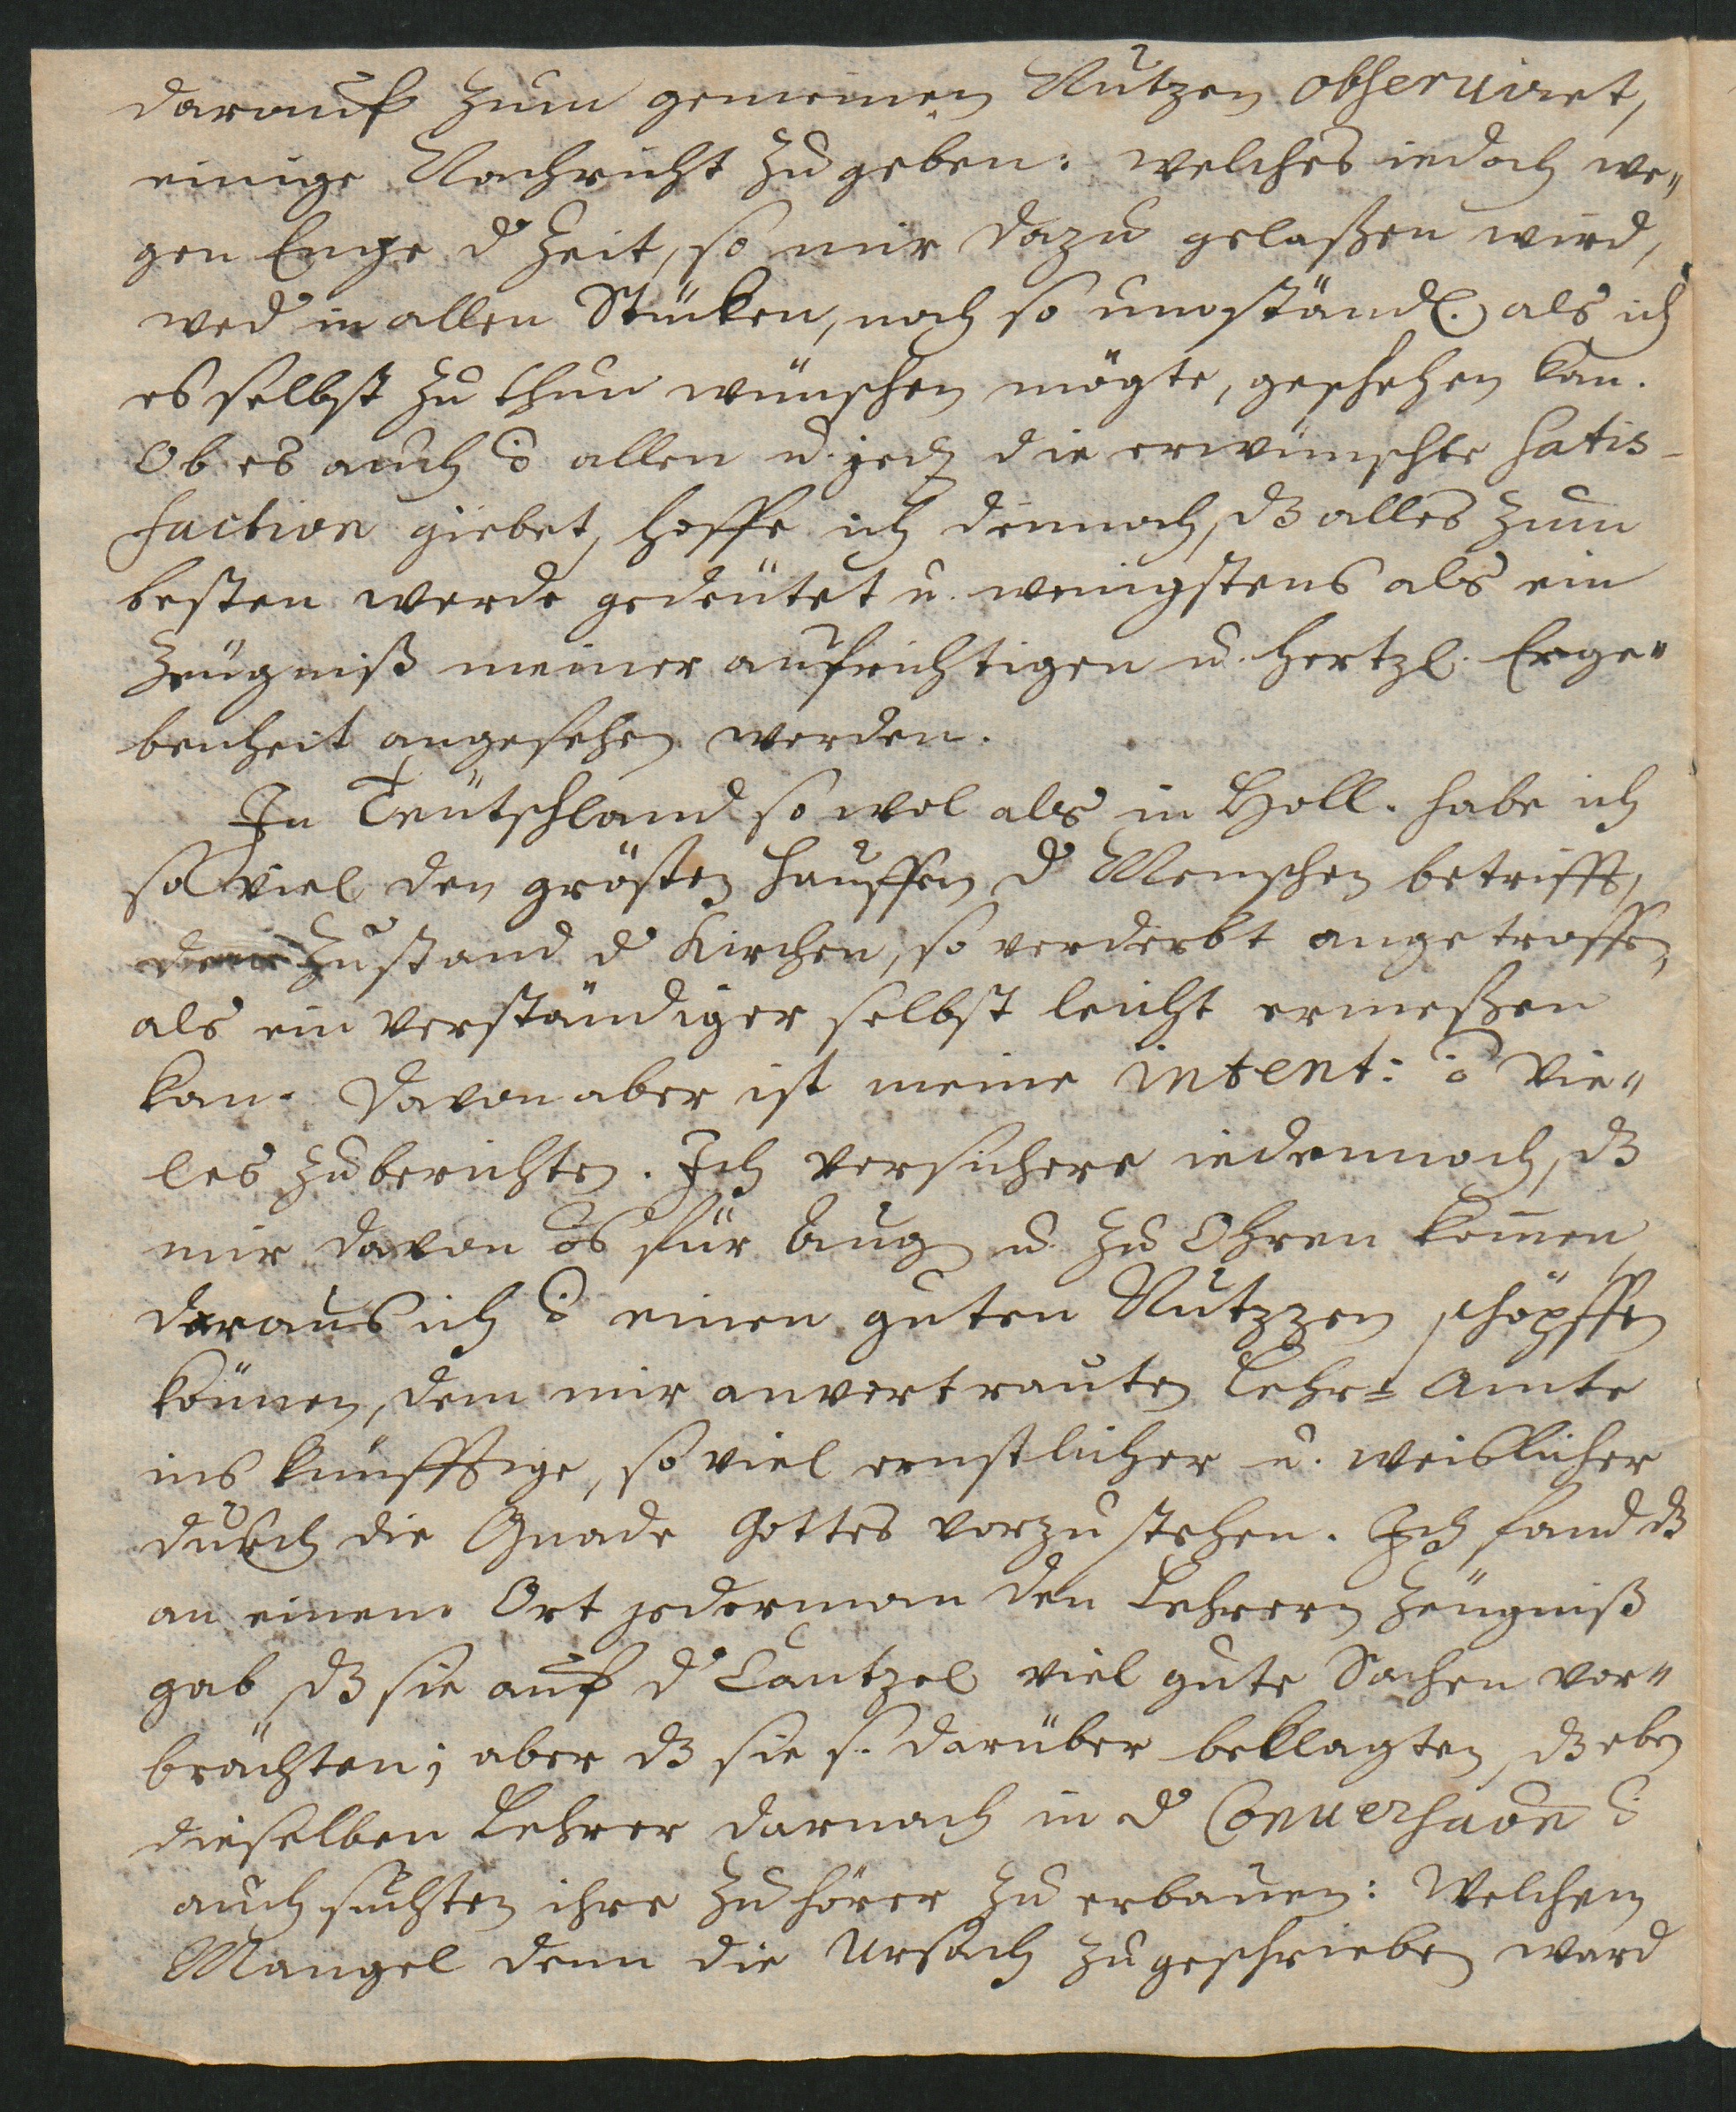 darauf zum gemeinen Nutzen observiret,
einige Nachricht zu geben: welches iedoch we„
gen Enge d Zeit, so mir dazu gelaßen wird,
wed in allen Stücken, noch so umständl. als ich
es selbst zu thun wünschen mögte, geschehen kan.
Ob es auch allen u. jed die erwünschte satis-
faction giebet, hoffe ich dennoch, dß alles zum
besten werde gedeütet u. wenigstens als ein
Zeügniß meiner aufrichtigen u. hertzl. Erge„
benheit angesehen werden.
In Teütschland so wol als in Holl. habe ich
so viel den grösten Hauffen d Menschen betrifft,
den Zustand d Kirchen, so verderbt angetroffen,
als ein verständiger selbst leicht ermeßen
kan. Davon aber ist meine intent: vie„
les zu berichten. Ich versichere iedennoch, dß
mir davon für Aug u. zu Ohren kom̅en,
daraus ich einen guten Nutzzen schöpffen
können, dem mir anvertrauten Lehr= Amte
ins künfftige, so viel ernstlicher u. weißlicher
durch die Gnade Gottes vorzustehen. Ich fand dß
an einem Ort jederman den Lehrern Zeügniß
gab, dß sie auf d Cantzel viel gute Sachen vor„
brächten; aber dß sie s. darüber beklagten, dß eben
dieselben Lehrer darnach in d Conversaon
auch suchten ihre Zuhörer zu erbauen: Welchem
Mangel denn die Ursach zugeschrieben ward